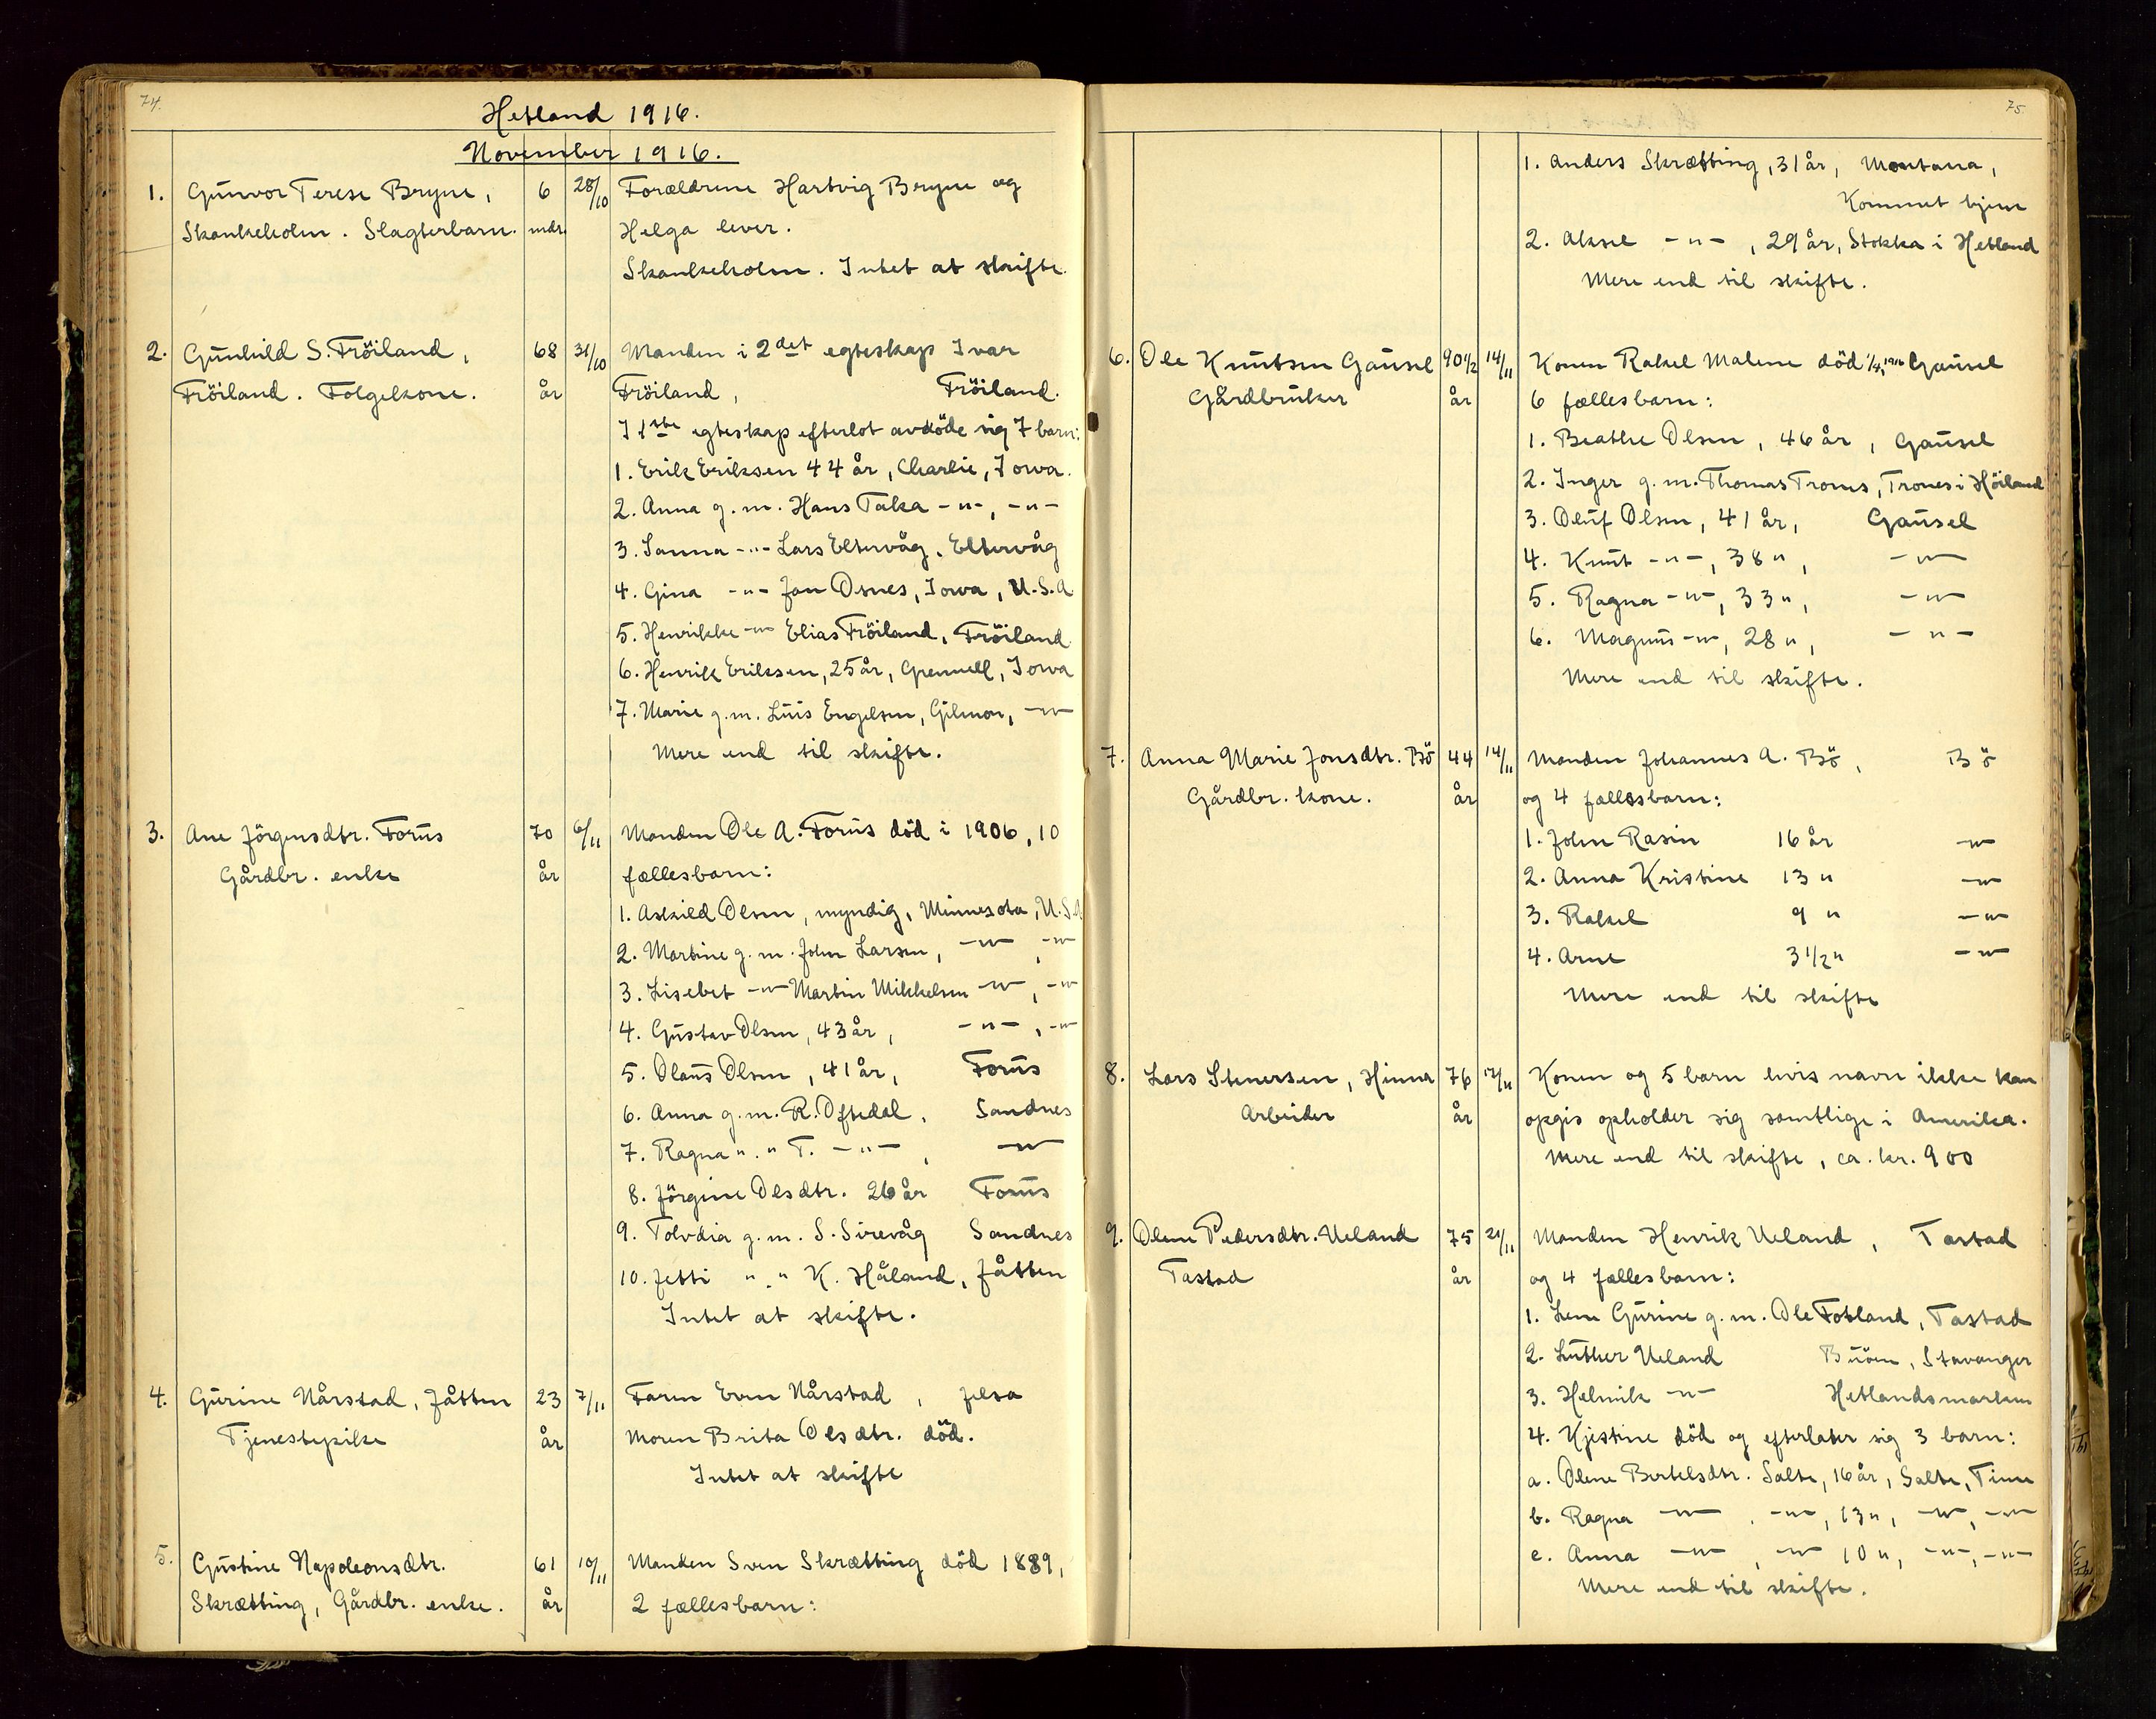 74.
Hetland 1916.
November 1916.
1. Gunvor Terese Bryne, 6 28/10 Forældrene Hartvig Bryne og
Skankeholm. Slagterbarn. mdr. Helga lever.
Skankeholm. Intet at skifte.
2. Gunhild S. Fröiland, 68 31/10 Manden i 2det egteskap Ivar
Fröiland. Folgekone. år Fröiland, Fröiland.
I 1ste egteskap efterlot avdöde sig 7 barn:
1. Erik Eriksen 44 år, Charlie, Iowa.
2. Anna g. m. Hans Taka -"-, -"-
3. Sanna -"- Lars Eltervåg, Eltervåg
4. Gina -"- Jon Osnes, Iowa, U.S.A
5. Henrikke -"- Elias Fröiland, Fröiland
6. Henrik Eriksen, 25 år, Iowa
7. Marie g. m. Luis Engelsen, Gilmor, -"-
Mere end til skifte.
3. Ane Jörgensdtr. Forus 70 6/11 Manden Ole A. Forus död i 1906, 10
Gårdbr. enke år fællesbarn:
1. Askild Olsen, myndig, Minnesota, U.S.A
2. Martine g. m. John Larsen, -"-, -"-
3. Lisebet -"- Martin Mikkelsen -"-, -"-
4. Gustav Olsen, 43 år, -"-, -"-
5. Olaus Olsen, 41 år, Forus
6. Anna g. m. R. Oftedal, Sandnes
7. Ragna ". " T. -"-, -"-
8. Jörgine Olsdtr. 26 år Forus
9. Tolvdia g. m. S. Sirevåg Sandnes
10. Jetti " . " K. Håland, Jåtten
Intet at skifte.
4. Gurine Nårstad, Jåtten 23 7/11 Faren Even Nårstad, Jelsa
Tjenestepike år Moren Brita Olsdtr. död.
Intet at skifte
5. Gustine Napoleonsdtr. 61 10/11 Manden Sven Skrætting död 1889,
Skrætting, Gårdbr. enke. år 2 fællesbarn:
75.
1. Anders Skrætting, 31 år, Montana,
Kommet hjem
2. Aksel -"-, 29 år, Stokka i Hetland
Mere end til skifte.
6. Ole Knutsen Gausel 90 1/2 14/11 Konen Rakel Malene död 1/4, 1916 Gausel
Gårdbruker år 6 fællesbarn:
1. Beathe Olsen, 46 år, Gausel
2. Inger g. m. Thomas Trones, Trones i Höiland
3. Oluf Olsen, 41 år, Gausel
4. Knut -"-, 38 ", -"-
5. Ragna -"-, 33 ", -"-
6. Magnus -"-, 28 ", -"-
Mere end til skifte.
7. Anna Marie Jonsdtr. Bö 44 14/11 Manden Johannes A. Bö, Bö
Gårdbr. kone. år og 4 fællesbarn:
1. John Rasin 16 år -"-
2. Anna Kristine 13 " -"-
3. Rakel 9 " -"-
4. Arne 3 1/2 " -"-
Mere end til skifte
8. Lars Stenersen, Hinna 76 17/11 Konen og 5 barn hvis navn ikke kan
Arbeider år opgis opholder sig samtlige i Amerika.
Mere end til skifte, ca. kr. 900
9. Olene Pedersdtr. Ueland 75 21/11 Manden Henrik Ueland, Tastad
Tastad år og 4 fællesbarn:
1. Lene Gurine g. m. Ole Fotland, Tastad
2. Luther Ueland Buöen, Stavanger
3. Helmik -"- Hetlandsmarken
4. Kjistine död og efterlater sig 3 barn:
a. Olene Bertelsdtr. Salte, 16 år, Salte, Time
b. Ragna -"-, -"-, 13 ", -"-, -"-
c. Anna -"-, -"- 10 ", -"-, -"-
Mere end til skifte.